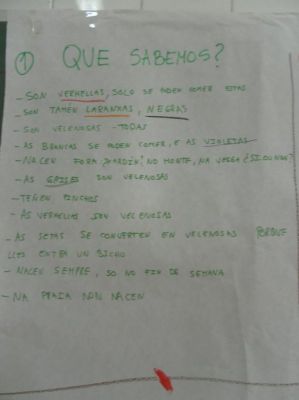 1 QUE SABEMOS?
- SON VERMELLAS, SOLO SE PODEN COMER ESTAS
- SON TAMÉN LARANXAS, NEGRAS
- SON VELENOSAS - TODAS
- AS BRANCAS SE PODEN COMER, E AS VIOLETAS
- NACEN FORA, XARDÍN? NO MONTE, NA VEIGA ¿SI OU NON?
- AS GRISES SON VELENOSAS
- TEÑEN PINCHOS
- AS VERMELLAS SON VELENOSAS
- AS SETAS SE CONVERTEN EN VELENOSAS PORQUE
LLES ENTRA UN BICHO
- NACEN SEMPRE, SO NO FIN DE SEMANA
- NA PRAIA NON NACEN